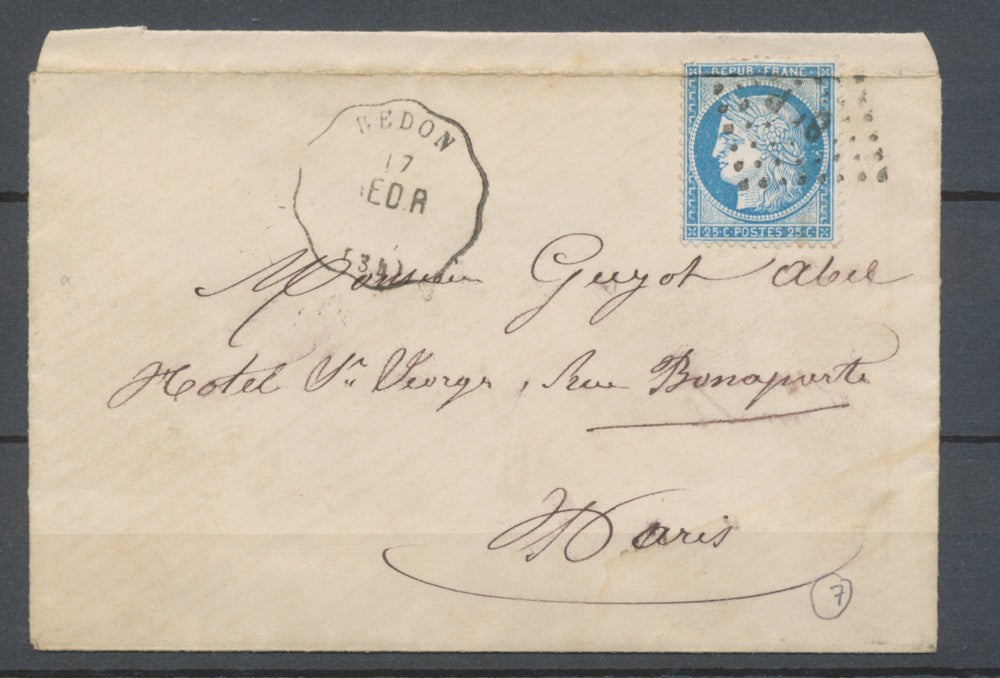 REPUB·FRANC·
25C POSTES 25C
REDON
17
(34)
Monsieur Guyot Abel
Hotel St George, Rue Bonaparte
Paris
7